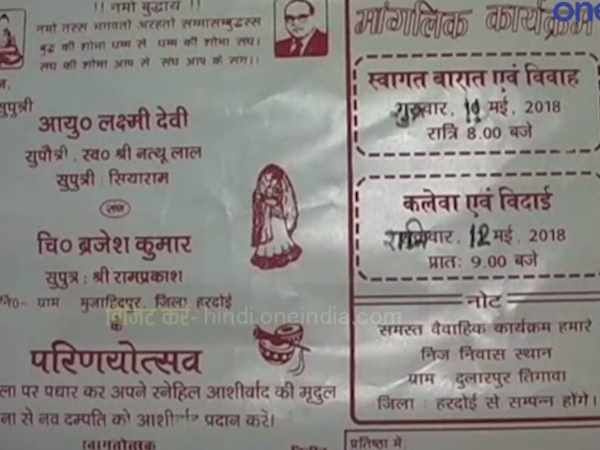 !! नमो बुद्धाय !!
नमो तस्स भगवतो अरहतो सम्मासम्बुद्धस्स
बुद्ध की शोभा धम्म से धम्म की शोभा संघ।
संघ की शोभा आप से संघ आप के संग।।
सुपुत्री
आयु० लक्ष्मी देवी
सुपौत्री : स्व० श्री नत्थू लाल
सुपुत्री : सियाराम
संग
चि० ब्रजेश कुमार
सुपुत्र : श्री रामप्रकाश
नि०- ग्राम मुजाहिदपुर, जिला हरदोई
के
परिणयोत्सव
पर पधार कर अपने स्नेहिल आशीर्वाद की मृदुल
से नव दम्पति को आशीर्वाद प्रदान करें।
मांगलिक कार्यक्रम
स्वागत बारात एवं विवाह
गुरुवार, मई, 2018
रात्रि 8.00 बजे
कलेवा एवं विदाई
12 मई, 2018
प्रातः 9.00 बजे
नोट
समस्त वैवाहिक कार्यक्रम हमारे
निज निवास स्थान
ग्राम : दुलारपुर तिगावा
जिला : हरदोई से सम्पन्न होंगे।
प्रतिष्ठा में,
विजिट करें- hindi.oneindia.com
one